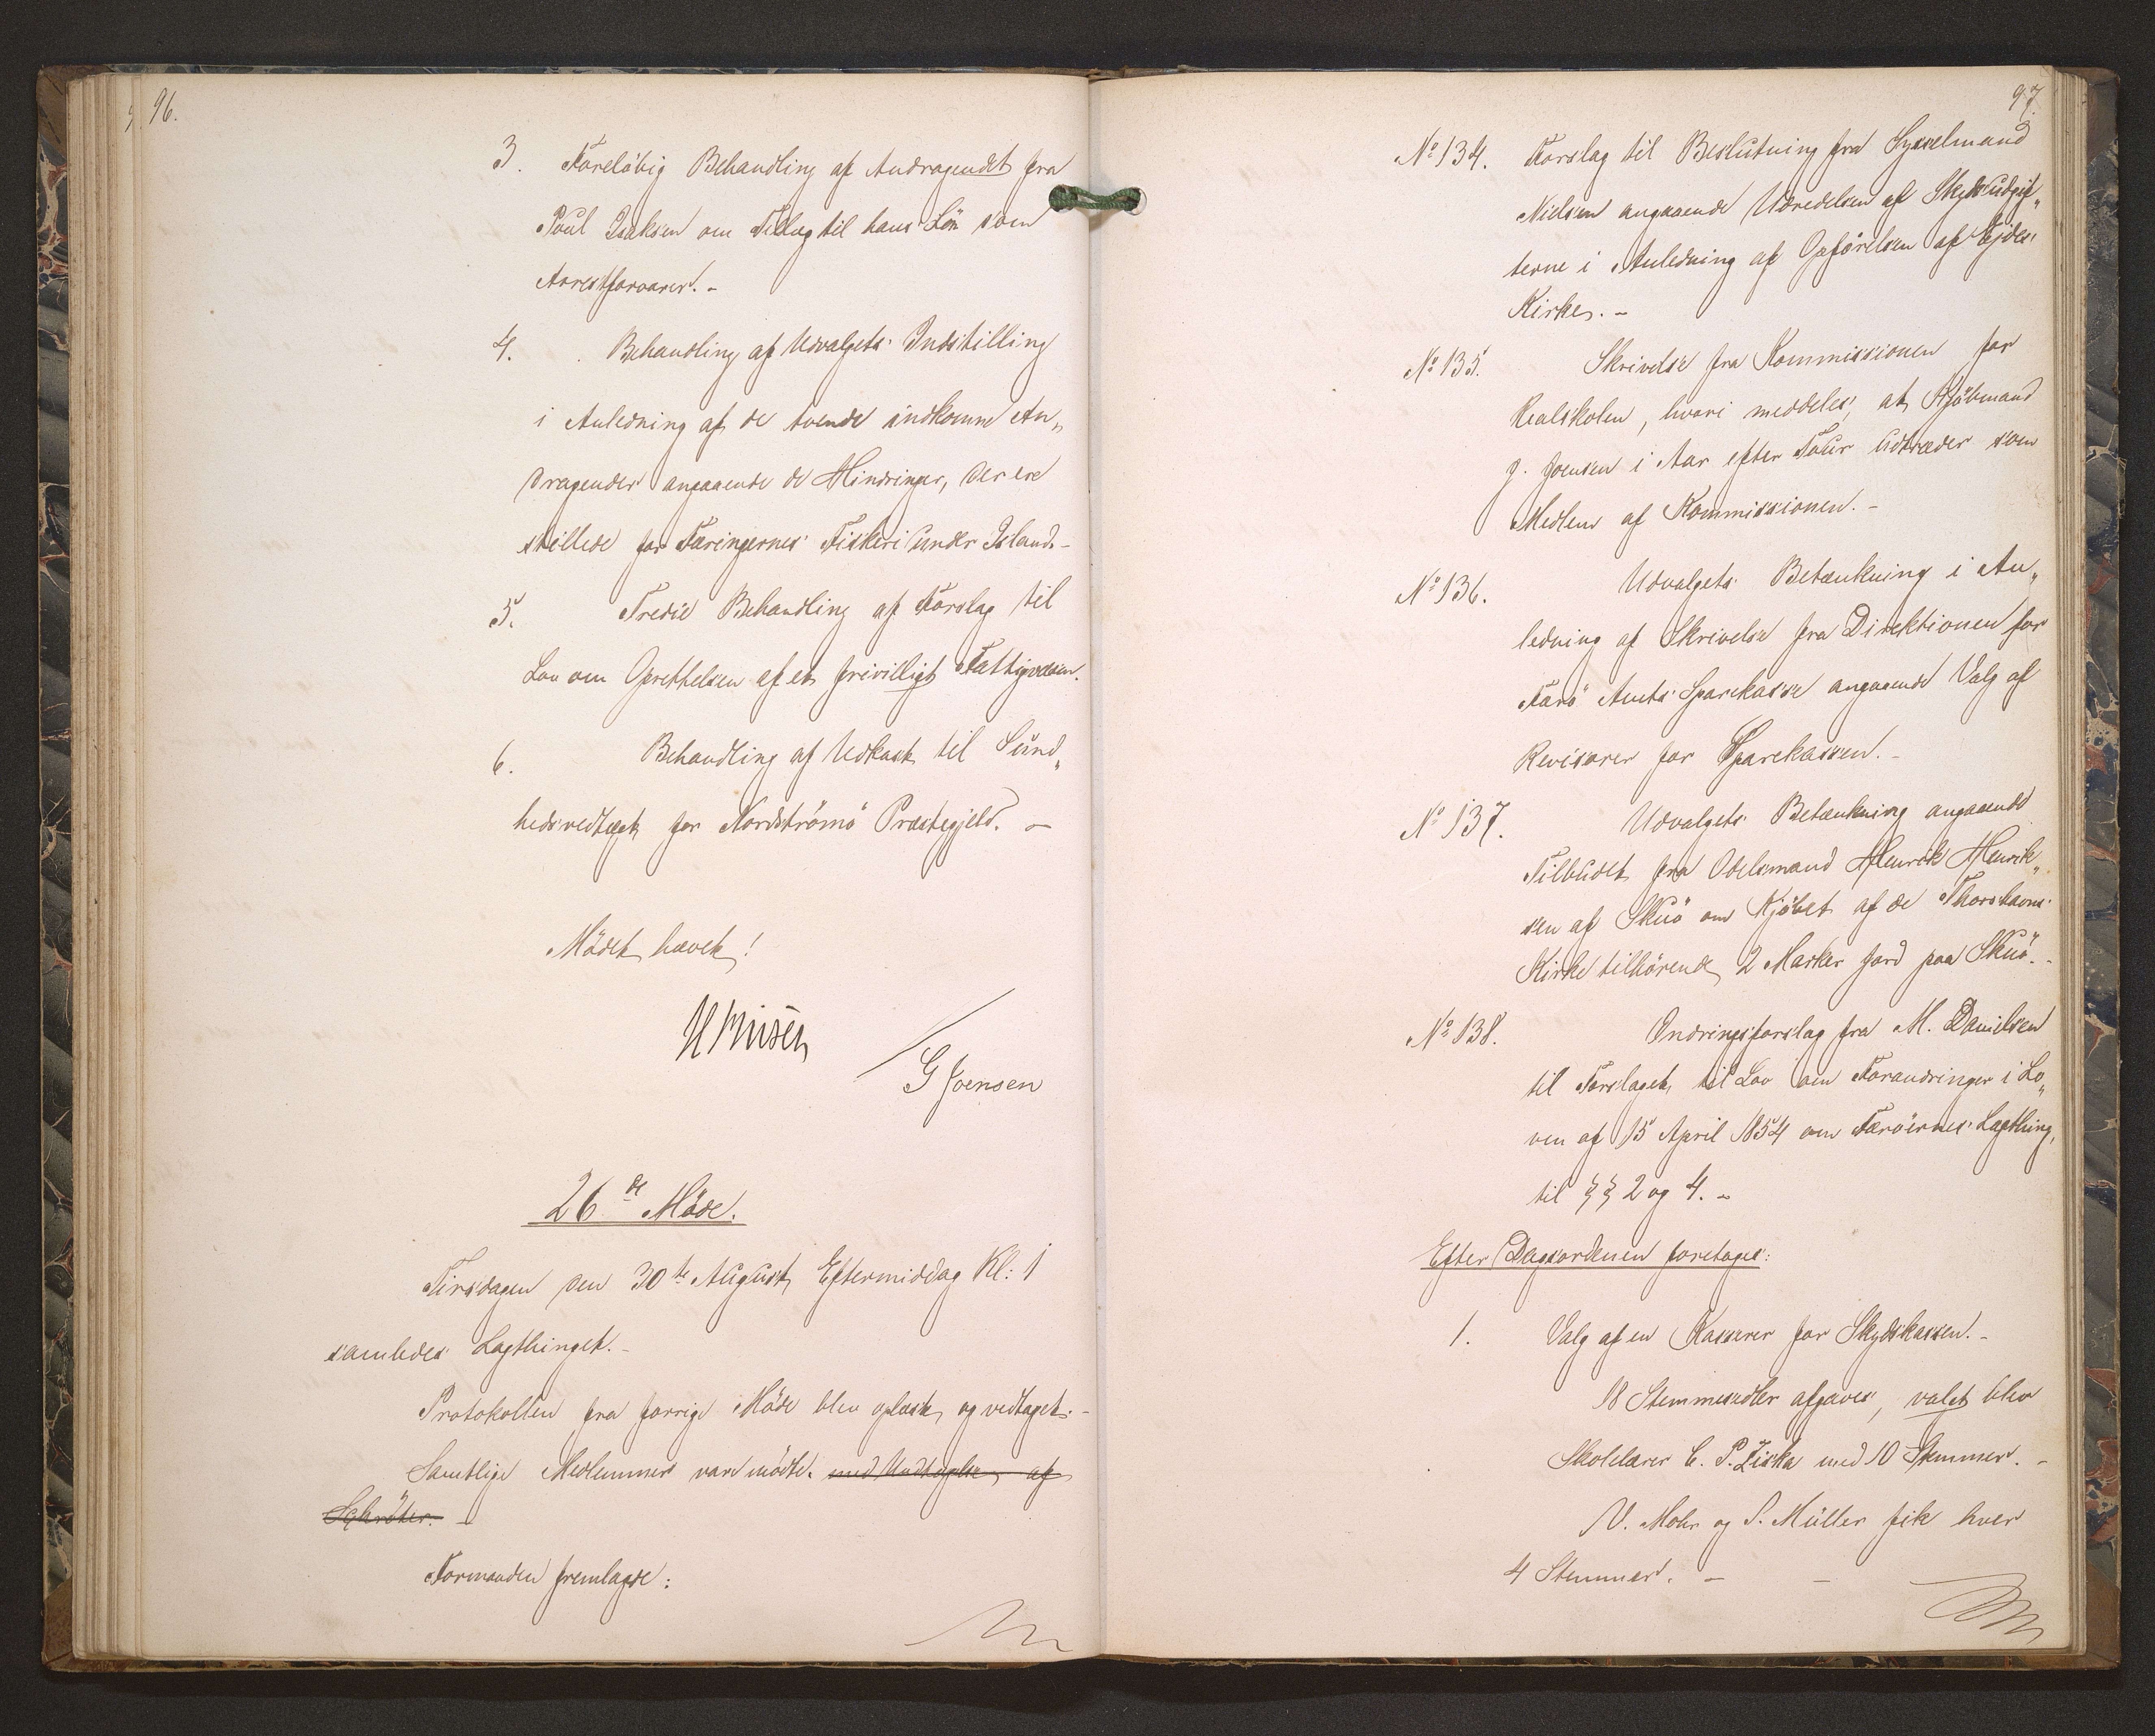 96.
3. Foreløbig Behandling af Andragendet fra
Poul Isaksen om Tillæg til hans Lön som
Arrestforvarer. -
4. Behandling af Udvalgets Indstilling
i Anledning af de tvende indkomne An„
dragender angaaende de Hindringer, der ere
stillede for Færingernes Fiskeri under Island. -
5. Tredie Behandling af Forslag til
Lov om Oprettelsen af et frivilligt Fattigvæsen.
6. Behandling af Udkast til Sund„
hedsvedtægt for Nordströmö Præstegjeld. -
Mödet hævet!
G Joensen
26de Möde.
Tirsdagen den 30te August Eftermiddag Kl: 1
samledes Lagthinget. -
Protokollen fra forrige Möde blev oplæst og vedtaget. -
Samtlige Medlemmer vare mödte. med Undtagelse af
Schröter. -
Formanden fremlagde:
97.
No 134. Forslag til Beslutning fra Sysselmand
Nielsen angaaende Udredelsen af Skydsudgif„
terne i Anledning af Opförelsen af Ejdes
Kirke. -
No 135. Skrivelse fra Kommissionen for
Realskolen, hvori meddeles, at Kjöbmand
J. Joensen i Aar efter Tour udtræder som
Medlem af Kommissionen. -
No 136. Udvalgets Betænkning i An„
ledning af Skrivelse fra Direktionen for
Færö Amts Sparekasse angaaende Valg af
Revisorer for Sparekassen. -
No 137. Udvalgets Betænkning angaaende
Tilbudet fra Odelsmand Henrik Henrik„
sen af Skuö om Kjöbet af de Thorshavns
Kirke tilhörende 2 Marker Jord paa Skuö. -
No 138. Ændringsforslag fra M. Danielsen
til Forslaget til Lov om Forandringer i Lo„
ven af 15 April 1854 om Færöernes Lagthing,
til §§ 2 og 4. -
Efter Dagsordenen foretages:
1. Valg af en Kasserer for Skydskassen. -
18 Stemmesedler afgaves, valgt blev
Skolelærer C. P. Ziska med 10 Stemmer. -
V. Mohr og S. Müller fik hver
4 Stemmer. -